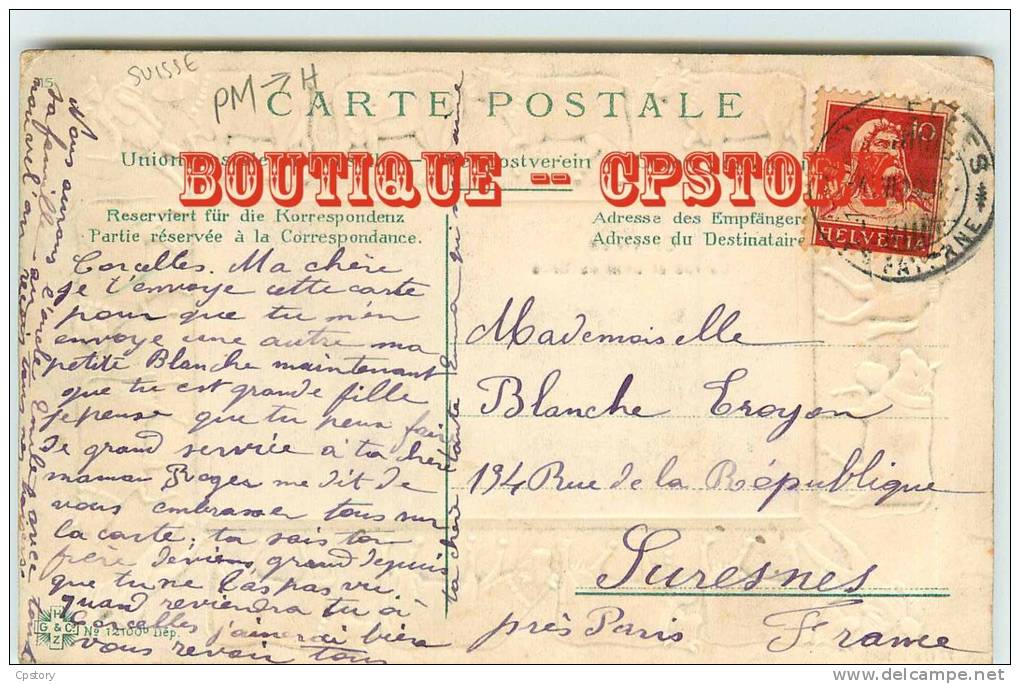 SUISSE
PM → H
15
CARTE POSTALE
BOUTIQUE -- CPSTORY
Union postverein
Reserviert für die Korrespondenz
Partie réservée à la Correspondance.
Adresse des Empfängers
Adresse du Destinataire
10
HELVETIA
PAYERNE
Corcelles. Ma chère
je t'envoye cette carte
pour que tu m'en
envoye une autre ma
petite Blanche maintenant
que tu est grande fille
je pense que tu peux faire
de grand service à ta chère
maman Roger me dit de
vous embrasser tous sur
la carte; ta sais ton
frère deviens grand depuis
que tu ne l'as pas vu.
quand reviendra tu à
Corcelles j'aimerai bien
vous revoir tous
Nous aurons l'oncle Emile avec
sa famille
noël on
ta chère tante Emma qui aime
Mademoiselle
Blanche Troyon
134 Rue de la République
Suresnes
près Paris France
H
G & C
Z
No 12100 Dép.
Cpstory
delcampe.net